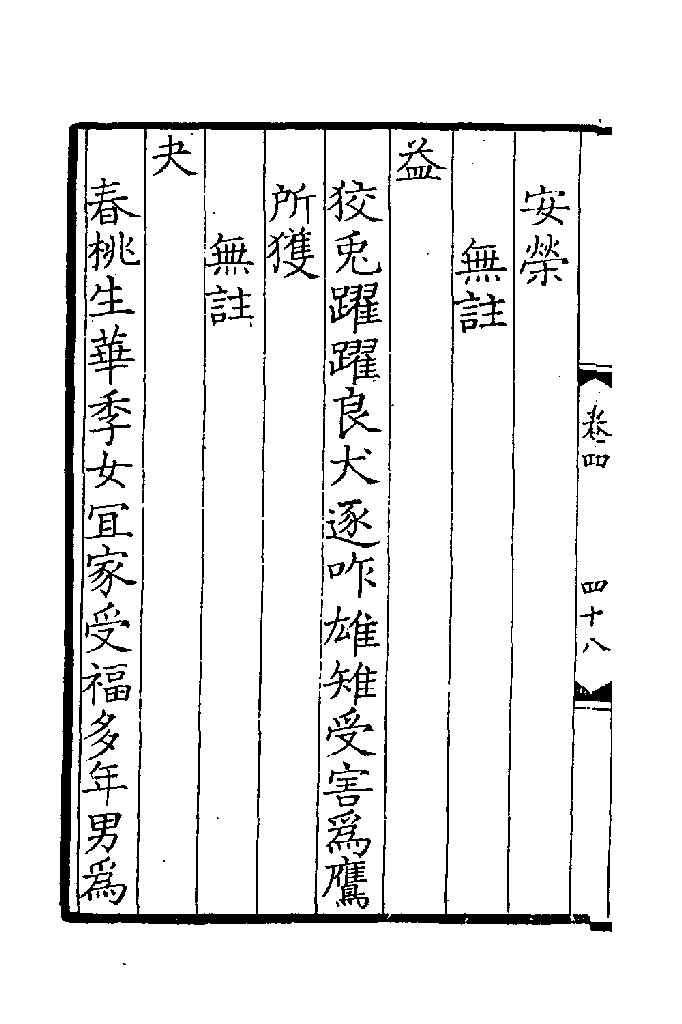 安榮
無註
益
狡兎躍躍良犬逐咋雄雉受害爲鷹
所獲
無註
夬
春桃生華季女冝家受福多年男爲
卷四
四十八